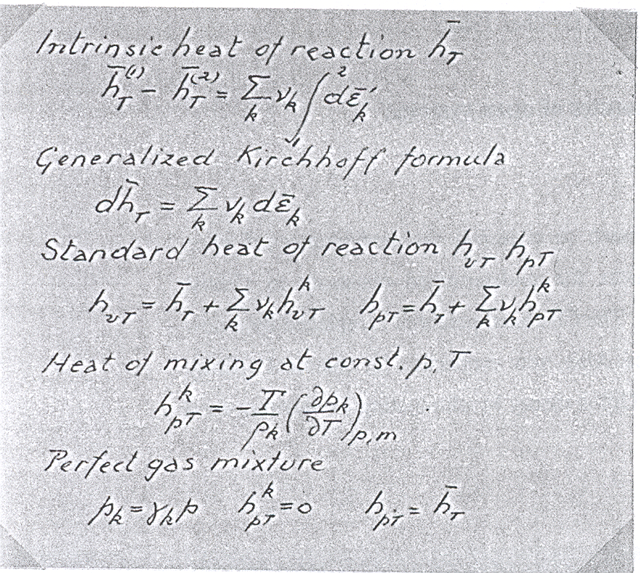 Intrinsic heat of reaction h̄_T
h̄_T^(1) - h̄_T^(2) = Σ_k ν_k ∫_1^2 dε̄_k'
Generalized Kirchhoff formula
dh̄_T = Σ_k ν_k dε̄_k
Standard heat of reaction h_vT h_pT
h_vT = h̄_T + Σ_k ν_k h_vT^k   h_pT = h̄_T + Σ_k ν_k h_pT^k
Heat of mixing at const. p, T
h_pT^k = - T/ρ_k (∂p_k/∂T)_p,m
Perfect gas mixture
p_k = γ_k p   h_pT^k = 0   h_pT = h̄_T